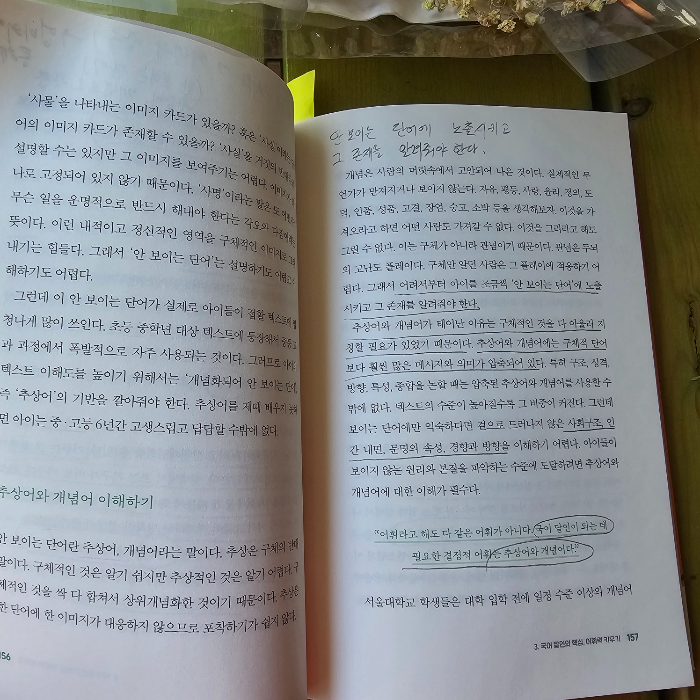 '사물'을 나타내는 이미지 카드가 있을까? 혹은 '사실'
어의 이미지 카드가 존재할 수 있을까? '사실'을 거짓의
설명할 수는 있지만 그 이미지를 보여주기는 어렵다. 이미지가
나로 고정되어 있지 않기 때문이다. '사명'이라는 말은 또
무슨 일을 운명적으로 반드시 해내야 한다는 각오와 다짐
뜻이다. 이런 내적이고 정신적인 영역을 구체적인 이미지로
내기는 힘들다. 그래서 '안 보이는 단어'는 설명하기도 어렵고
해하기도 어렵다.
그런데 이 안 보이는 단어가 실제로 아이들이 접할 텍스트에
청나게 많이 쓰인다. 초등 중학년 대상 텍스트에 등장해서
과 과정에서 폭발적으로 자주 사용되는 것이다. 그러므로
텍스트 이해도를 높이기 위해서는 '개념화되어 안 보이는 단어
즉 '추상어'의 기반을 깔아줘야 한다. 추상어를 제때 배우지 못하
면 아이는 중·고등 6년간 고생스럽고 답답할 수밖에 없다.
추상어와 개념어 이해하기
안 보이는 단어란 추상어, 개념어라는 말이다. 추상은 구체의 반대
말이다. 구체적인 것은 알기 쉽지만 추상적인 것은 알기 어렵다. 구
체적인 것을 싹 다 합쳐서 상위개념화한 것이기 때문이다. 추상은
한 단어에 한 이미지가 대응하지 않으므로 포착하기가 쉽지 않다.
156
안 보이는 단어에 노출시키고
그 존재를 알려줘야 한다.
개념은 사람의 머릿속에서 고안되어 나온 것이다. 실제적인 무
언가가 만져지거나 보이지 않는다. 자유, 평등, 사랑, 윤리, 정의, 도
덕, 인품, 성품, 고결, 장엄, 숭고, 소박 등을 생각해보자. 이것을 가
져오라고 하면 어떤 사람도 가져갈 수 없다. 이것을 그리라고 해도
그릴 수 없다. 이는 구체가 아니라 관념이기 때문이다. 관념은 두뇌
의 고난도 플레이다. 구체만 알던 사람은 그 플레이에 적응하기 어
렵다. 그래서 어려서부터 아이를 조금씩 '안 보이는 단어'에 노출
시키고 그 존재를 알려줘야 한다.
추상어와 개념어가 태어난 이유는 구체적인 것을 다 아울러 지
칭할 필요가 있었기 때문이다. 추상어와 개념어에는 구체적 단어
보다 훨씬 많은 메시지와 의미가 압축되어 있다. 특히 구조, 성격,
방향, 특성, 종합을 논할 때는 압축된 추상어와 개념어를 사용할 수
밖에 없다. 텍스트의 수준이 높아질수록 그 비중이 커진다. 그런데
보이는 단어에만 익숙하다면 겉으로 드러나지 않은 사회구조, 인
간 내면, 문명의 속성, 경향과 방향을 이해하기 어렵다. 아이들이
보이지 않는 원리와 본질을 파악하는 수준에 도달하려면 추상어와
개념어에 대한 이해가 필수다.
"어휘라고 해도 다 같은 어휘가 아니다. 국어 달인이 되는 데
필요한 결정적 어휘는 추상어와 개념어다."
서울대학교 학생들은 대학 입학 전에 일정 수준 이상의 개념어
3. 국어 달인의 핵심, 어휘력 키우기 157